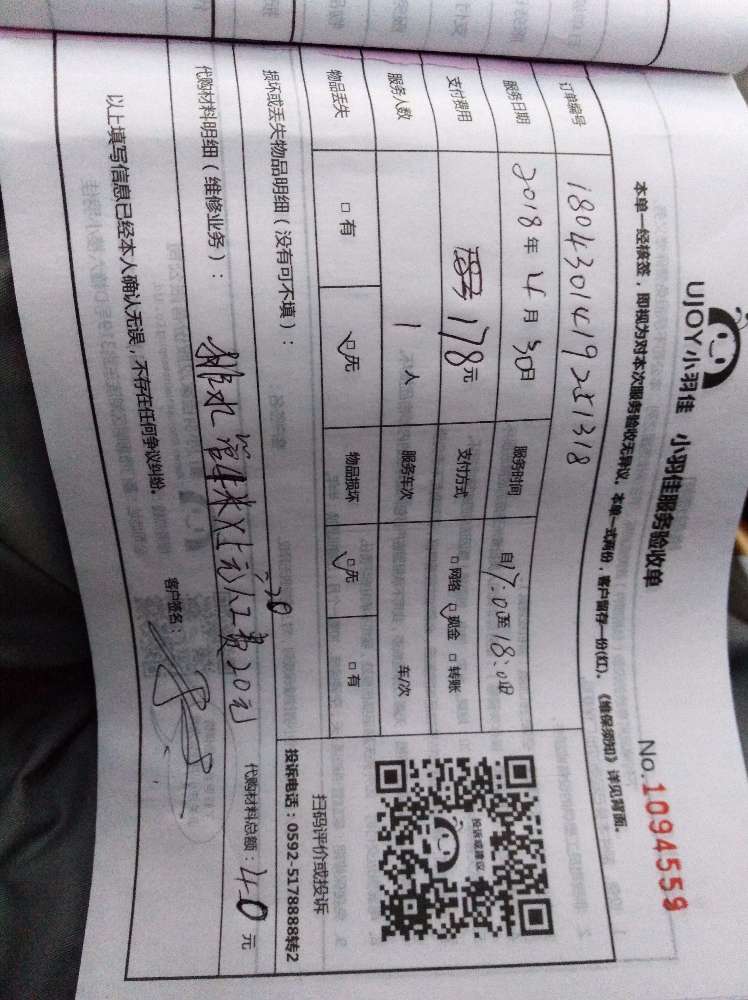 UJOY小羽佳 小羽佳服务验收单
No.1094559
本单一经核签，即视为对本次服务验收无异议。本单一式两份，客户留存一份(红)。《维保须知》详见背面。
订单编号 1804301419251318
服务日期 2018年4月30日 服务时间 自17:00至18:00
支付费用 178元 支付方式 □网络 □现金 □转账
服务人数 1人 服务车次 车/次
物品丢失 □有 □无 物品损坏 □无 □有
投诉或建议
扫码评价或投诉
投诉电话：0592-5178888转2
损坏或丢失物品明细（没有可不填）：
代购材料明细（维修业务）： 排水管 人工费20元
代购材料总额：40元
以上填写信息已经本人确认无误，不存在任何争议纠纷。 客户签名：